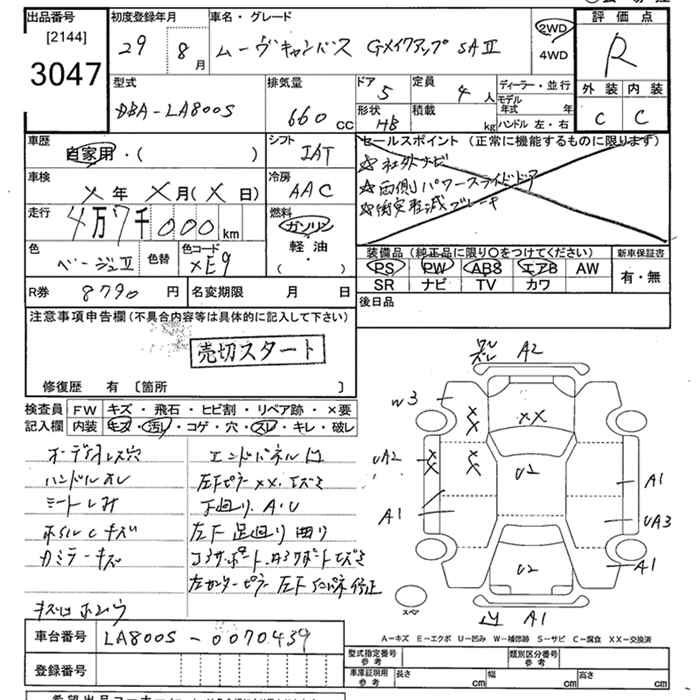 出品番号
[2144]
3047
初度登録年月
29 8月
車名・グレード
ムーヴキャンバス Gメイクアップ SAⅡ
2WD
4WD
評価点
R
外装 内装
C C
型式
DBA-LA800S
排気量
660 cc
ドア
5
定員
4人
形状
HB
積載
kg
ディーラー・並行
モデル年式 年
ハンドル 左・右
車歴
自家用・( )
シフト
IAT
車検
×年×月(×日)
冷房
AAC
走行
4万7千000km
燃料
ガソリン
軽油
( ・ )
色
ベージュⅡ
色替
色コード
XE9
R券 8790円
名変期限 月 日
セールスポイント(正常に機能するものに限ります)
☆社外ナビ
☆両側パワースライドドア
☆衝突軽減ブレーキ
装備品(純正品に限り○をつけてください)
PS PW ABS エアB AW
SR ナビ TV カワ
新車保証書
有・無
後日品
注意事項申告欄(不具合内容等は具体的に記入して下さい)
売切スタート
修復歴 有 〔箇所 〕
検査員記入欄
FW キズ・飛石・ヒビ割・リペア跡・×要
内装 キズ・汚レ・コゲ・穴・スレ・キレ・破レ
オーディオレス穴
ハンドルスレ
シートしみ
ホイルCキズ
カミラーキズ
エンドパネル凹
左Fピラー××、エズミ
下廻り A・U
左F 足廻り 曲り
A2
W3
××
UA2
U2
A1
A1
UA3
A1
U2
スペア
A1
A-キズ E-エクボ U-凹み W-補修跡 S-サビ C-腐食 XX-交換済
車台番号 LA800S-0070439
登録番号
型式指定番号 参考
類別区分番号 参考
車庫証明用 参考
長さ cm
幅 cm
高さ cm